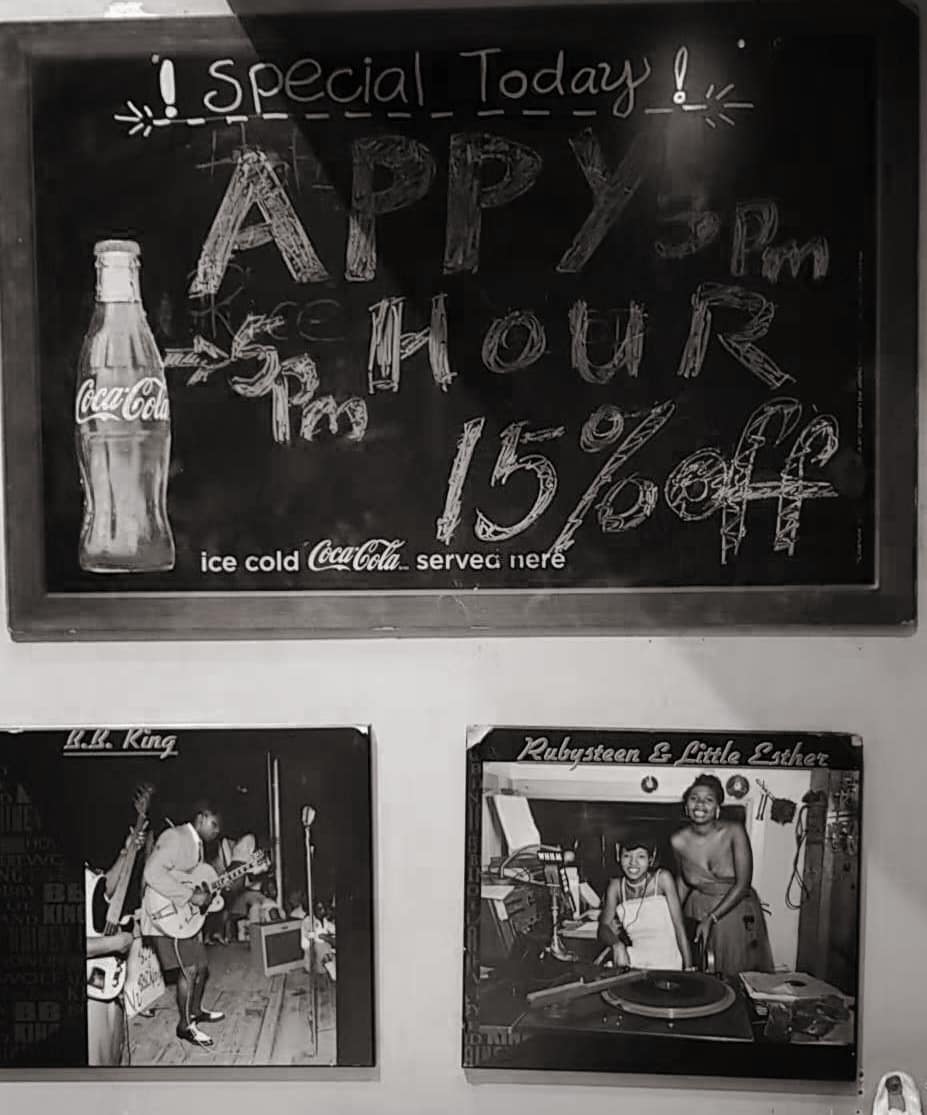 ! Special Today !
APPY 5pm
HOUR
5pm
15% off
Coca-Cola
ice cold Coca-Cola served here
B.B. King
Rubysteen & Little Esther
BB
KING
BB